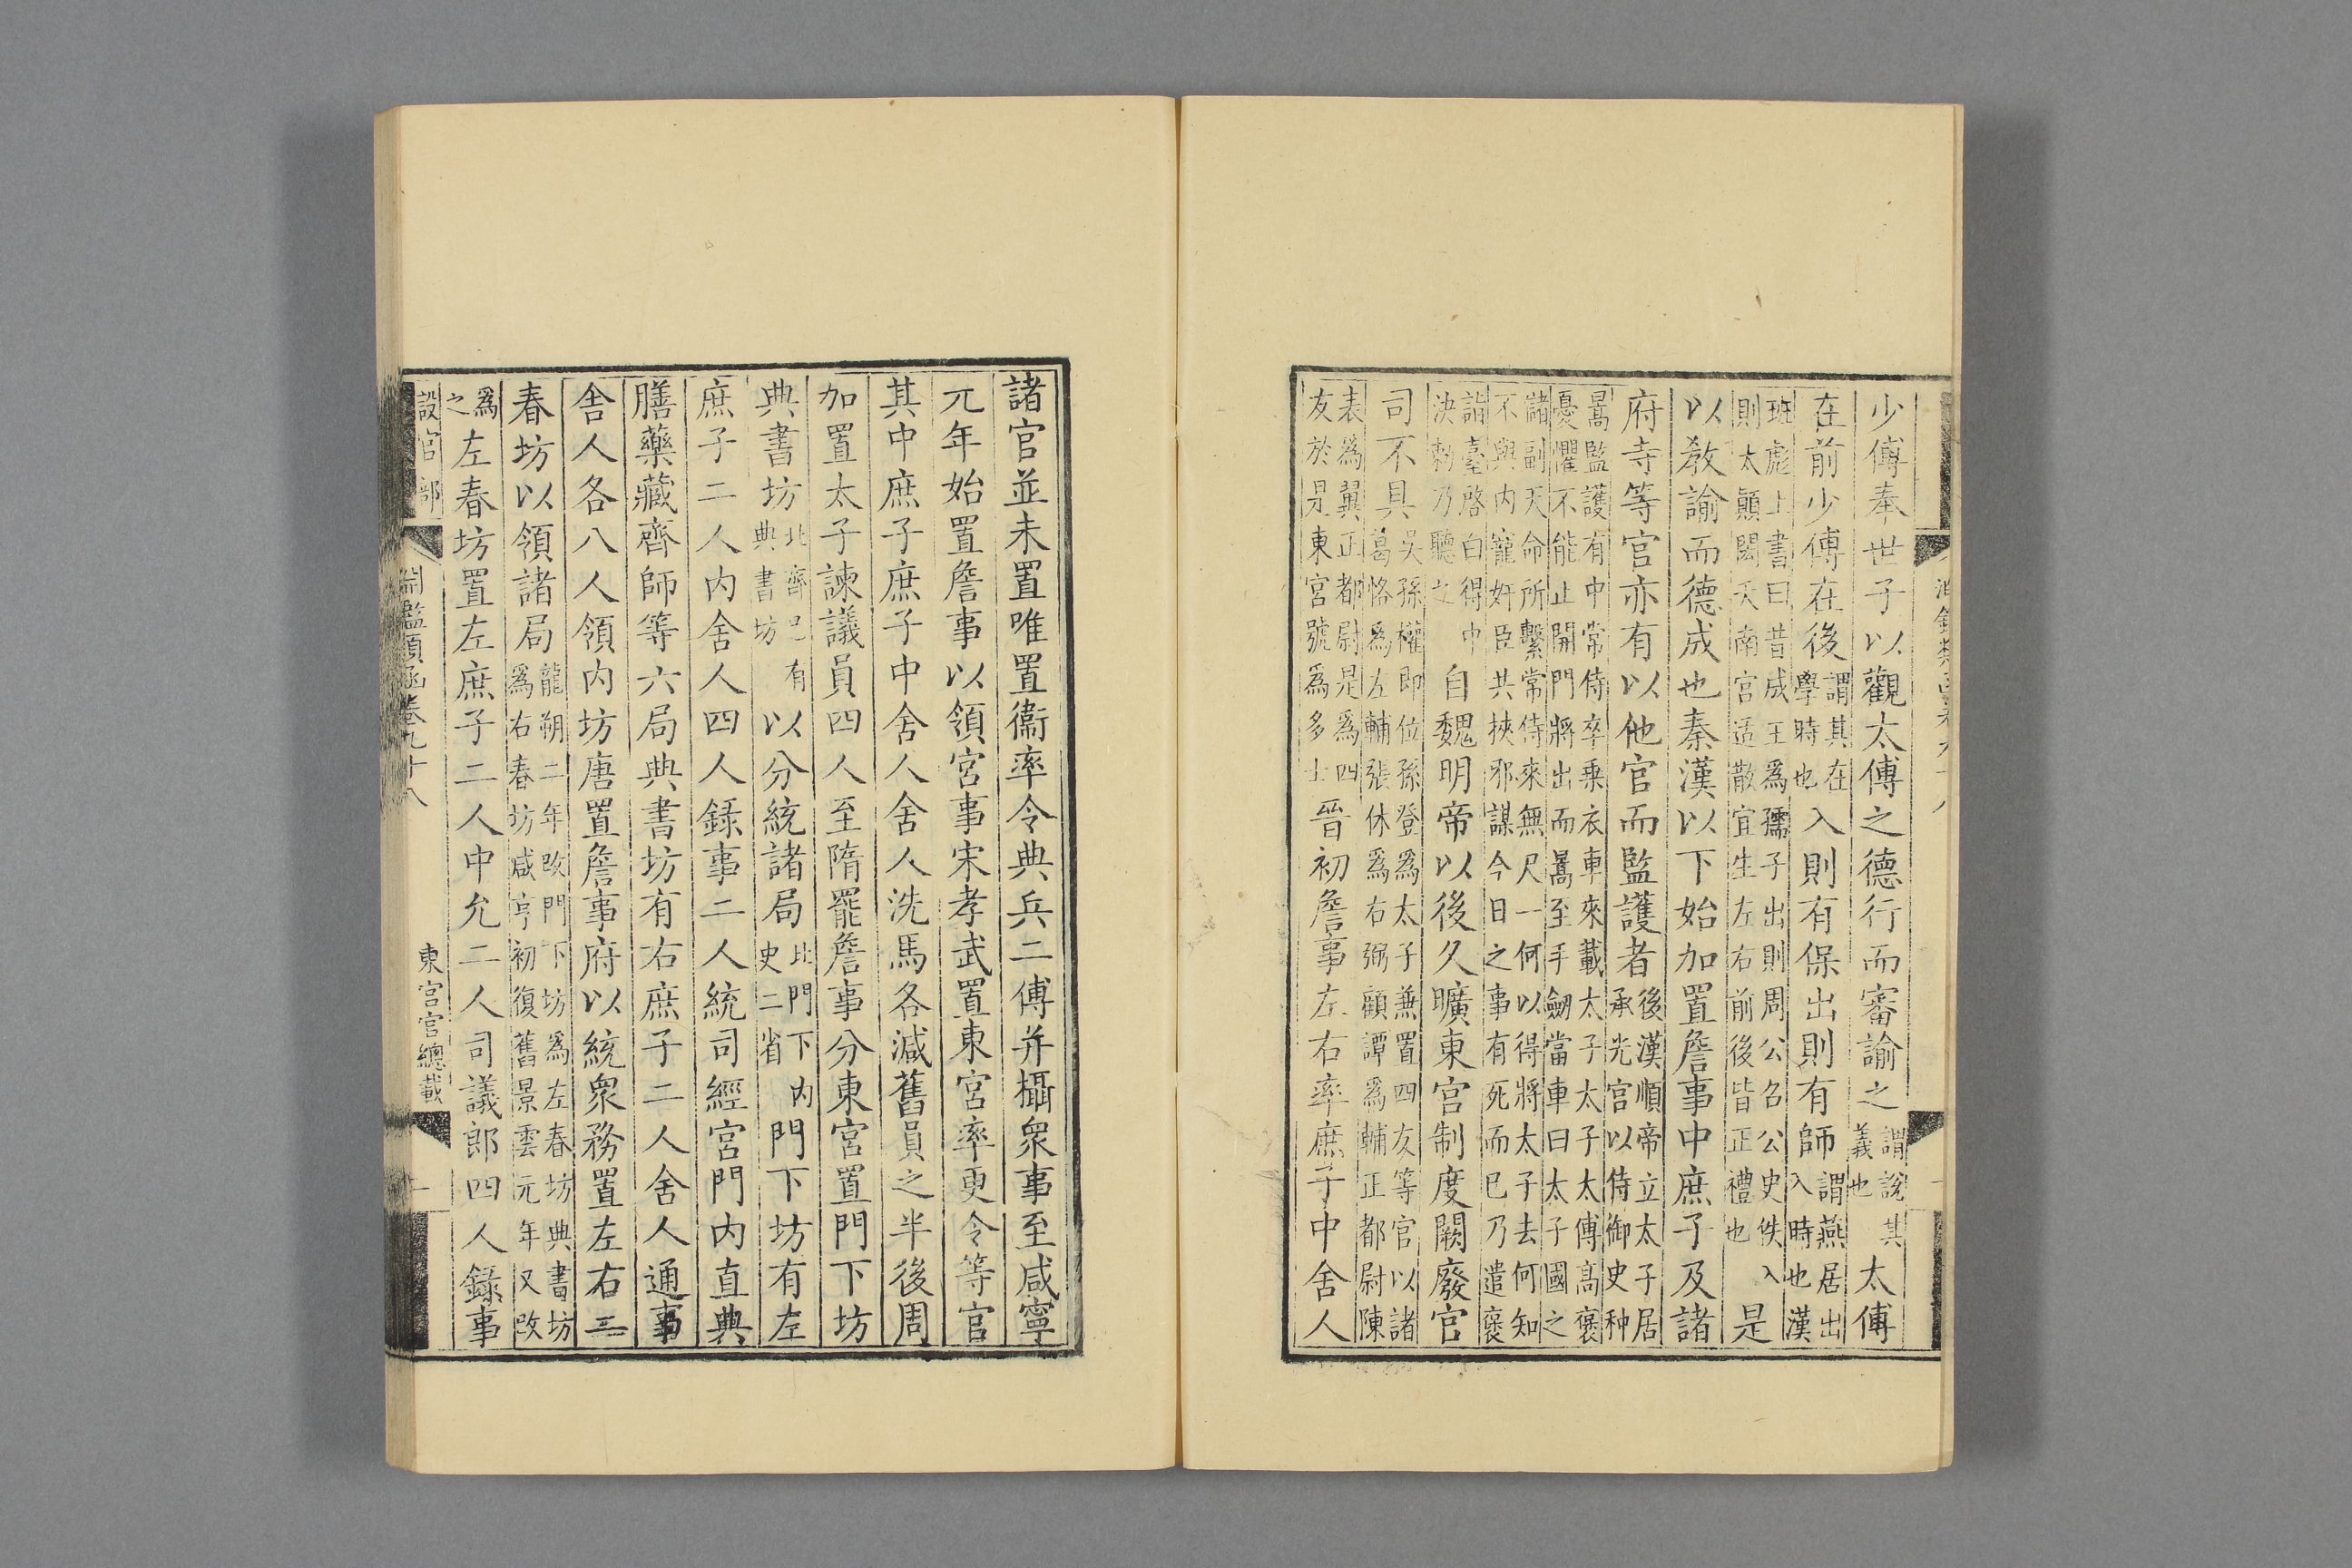 少傅奉世子以觀太傅之德行而審諭之謂說其義也太傅
在前少傅在後謂其在學時也入則有保出則有師謂燕居出入時也漢
班彪上書曰昔成王為孺子出則周公召公史佚入則太顛閎夭南宮适散宜生左右前後皆正禮也是
以教諭而德成也秦漢以下始加置詹事中庶子及諸
府寺等官亦有以他官而監護者後漢順帝立太子居承光宮以侍御史种
暠監護有中常侍卒乗衣車來載太子太子太傅高褒憂懼不能止開門將出而暠至手劒當車曰太子國之
儲副天命所繫常侍來無尺一何以得將太子去何知不與内寵奸臣共挾邪謀今日之事有死而已乃遣褒
詣臺啓白得中決勑乃聽之自魏明帝以後久曠東宮制度闕廢官
司不具吳孫權即位孫登爲太子兼置四友等官以諸葛恪爲左輔張休爲右弼顧譚爲輔正都尉陳
表爲翼正都尉是爲四友於是東宮號爲多士晉初詹事左右率庶子中舍人
諸官並未置唯置衞率令典兵二傅并攝衆事至咸寧
元年始置詹事以領宮事宋孝武置東宮率更令等官
其中庶子庶子中舍人舍人洗馬各減舊員之半後周
加置太子諫議員四人至隋罷詹事分東宮置門下坊
典書坊北齊已有典書坊以分統諸局比門下内史二省門下坊有左
庶子二人内舍人四人録事二人統司經宮門内直典
膳藥藏齊師等六局典書坊有右庶子二人舍人通事
舍人各八人領内坊唐置詹事府以統衆務置左右二
春坊以領諸局龍朔二年改門下坊爲左春坊典書坊爲右春坊咸亨初復舊景雲元年又改
爲之左春坊置左庶子二人中允二人司議郎四人録事
設官部 淵鑑類函卷九十八 東宮官總載